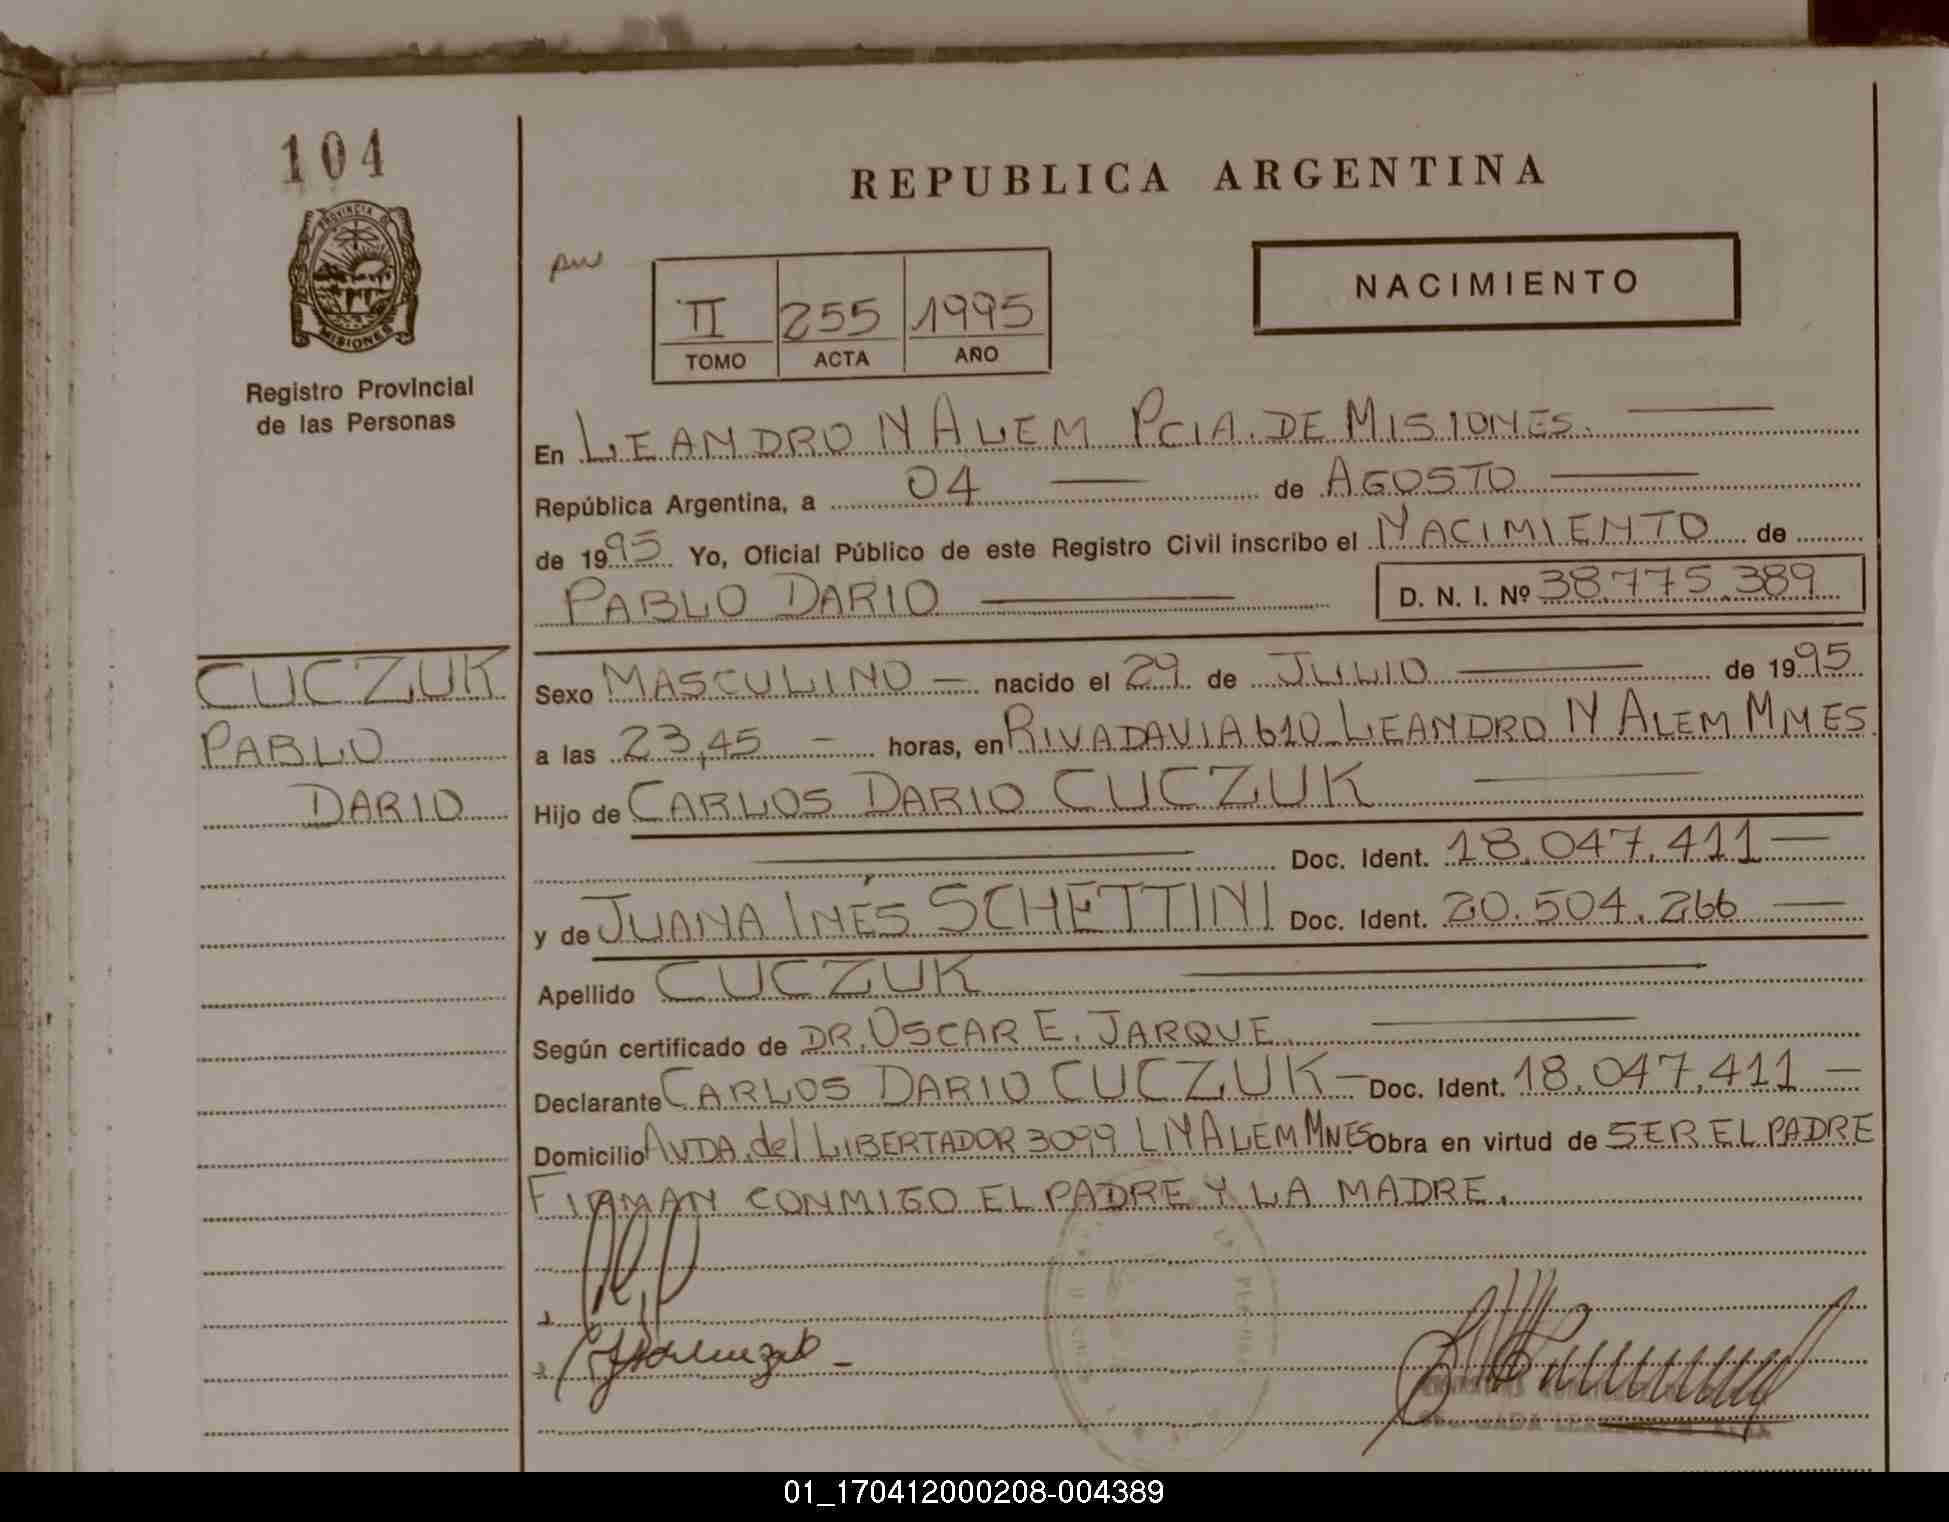 104
PROVINCIA DE
MISIONES
Registro Provincial
de las Personas
REPUBLICA ARGENTINA
NACIMIENTO
II 255 1995
TOMO ACTA AÑO
En LEANDRO N ALEM PCIA. DE MISIONES.
República Argentina, a 04 de AGOSTO
de 1995 Yo, Oficial Público de este Registro Civil inscribo el NACIMIENTO de
PABLO DARIO D. N. I. Nº 38.775.389
CUCZUK
PABLO
DARIO
Sexo MASCULINO nacido el 29 de JULIO de 1995
a las 23,45 horas, en RIVADAVIA 610 LEANDRO N ALEM MNES
Hijo de CARLOS DARIO CUCZUK
Doc. Ident. 18.047.411
y de JUANA INÉS SCHETTINI Doc. Ident. 20.504.266
Apellido CUCZUK
Según certificado de DR. OSCAR E. JARQUE
Declarante CARLOS DARIO CUCZUK Doc. Ident. 18.047.411
Domicilio AVDA. del LIBERTADOR 3099 LNALEM MNES Obra en virtud de SER EL PADRE
FIRMAN CONMIGO EL PADRE Y LA MADRE.
01_170412000208-004389